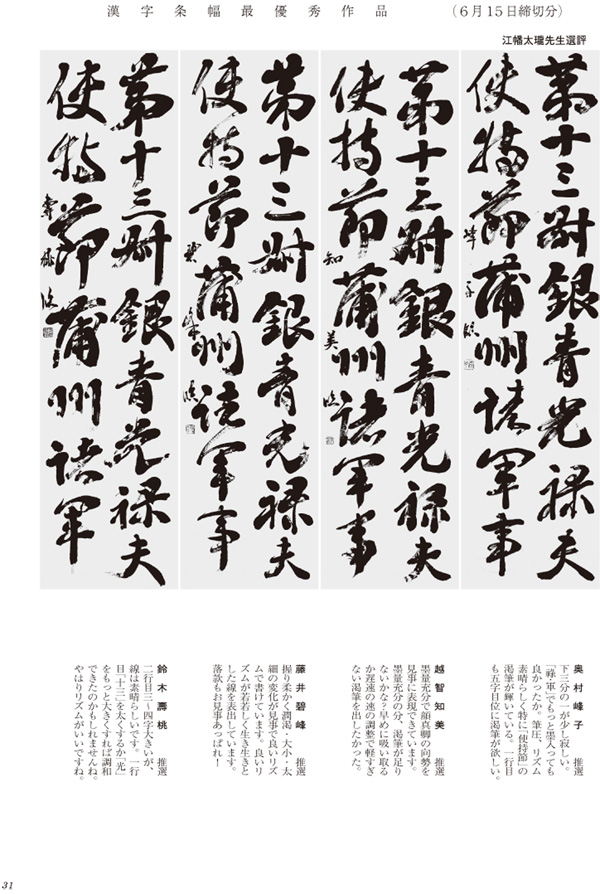 漢字条幅最優秀作品 (6月15日締切分)
江幡太瓏先生選評
第十三叔銀青光禄夫
使持節蒲州諸軍事
峰子臨
第十三叔銀青光禄夫
使持節蒲州諸軍事
知美臨
第十三叔銀青光禄夫
使持節蒲州諸軍事
碧峰臨
第十三叔銀青光禄夫
使持節蒲州諸軍
壽桃臨
奥村峰子 推選
下三分の一が少し寂しい。
「祿・軍」でもっと墨入っても
良かったか。筆圧、リズム
素晴らしく特に「使持節」の
渇筆が輝いている。一行目
も五字目位に渇筆が欲しい。
越智知美 推選
墨量充分で顔真卿の向勢を
見事に表現できています。
墨量充分の分、渇筆が足り
ないかな?早めに吸い取る
か遅速の速の調整で軽すぎ
ない渇筆を出したかった。
藤井碧峰 推選
握り柔かく潤渇・大小・太
細の変化が見事で良いリズ
ムで書けています。良いリ
ズムが若若しく生き生きと
した線を表出しています。
落款もお見事あっぱれ!
鈴木壽桃 推選
二行目三〜四字大きいが、
線は素晴らしいです。一行
目「十三」を太くするか「光」
をもっと大きくすれば調和
できたのかもしれませんね。
やはりリズムがいいですね。
31